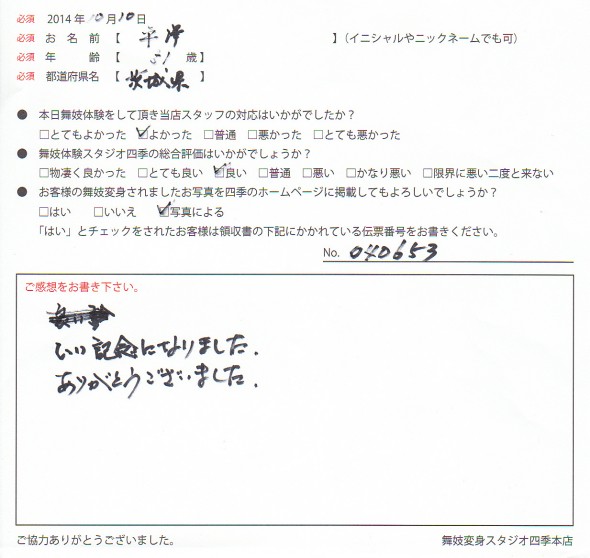 必須 2014年10月10日
必須 お名前【 平澤 】(イニシャルやニックネームでも可)
必須 年齢【 51 歳】
必須 都道府県名【 茨城県 】
● 本日舞妓体験をして頂き当店スタッフの対応はいかがでしたか?
□とてもよかった ☑よかった □普通 □悪かった □とても悪かった
● 舞妓体験スタジオ四季の総合評価はいかがでしょうか?
□物凄く良かった □とても良い ☑良い □普通 □悪い □かなり悪い □限界に悪い二度と来ない
● お客様の舞妓変身されましたお写真を四季のホームページに掲載してもよろしいでしょうか?
□はい □いいえ ☑写真による
「はい」とチェックをされたお客様は領収書の下記にかかれている伝票番号をお書きください。
No. 040653
ご感想をお書き下さい。
いい記念になりました.
ありがとうございました.
ご協力ありがとうございました。
舞妓変身スタジオ四季本店